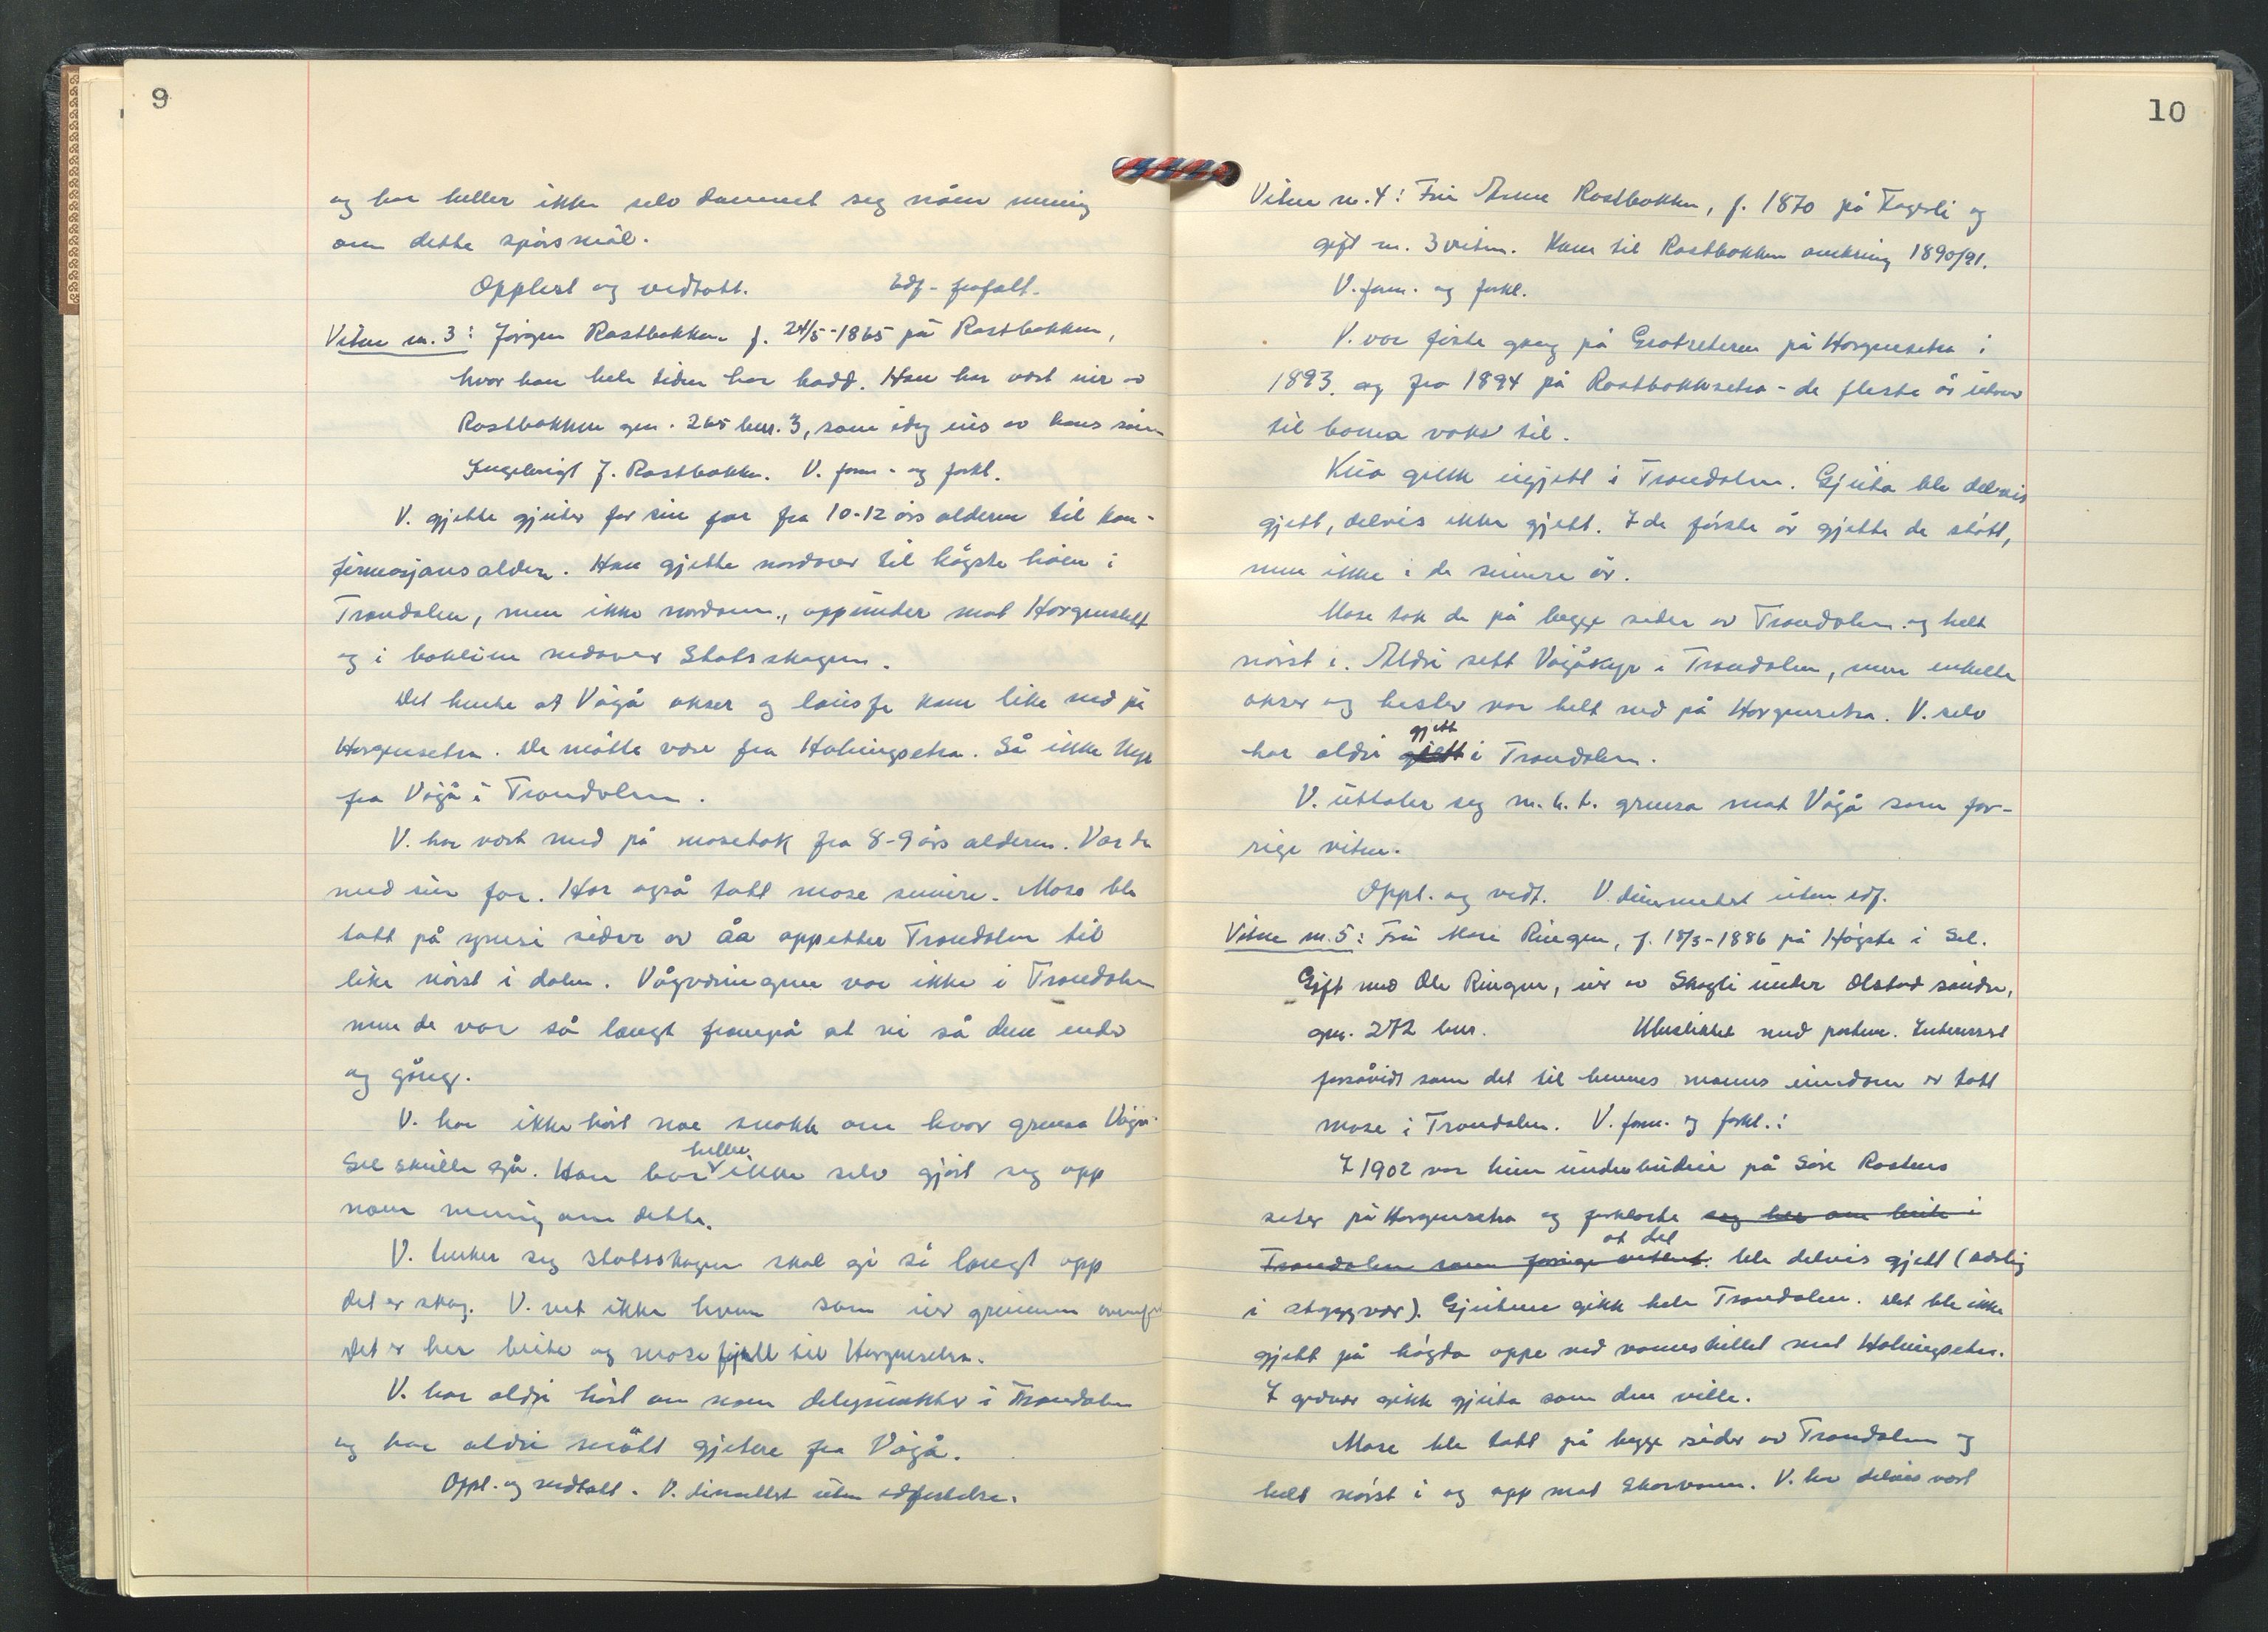 9
og har heller ikke selv dannet seg noen mening
om dette spørsmål.
Opplest og vedtatt. Edf. frafalt.
Vitne nr. 3: Jørgen Rostbakken f. 24/5-1865 på Rostbakken,
hvor han hele tiden har bodd. Han har vært eier av
Rostbakken gnr. 265 bnr. 3, som idag eies av hans sønn
Ingebrigt J. Rostbakken. V. form. og forkl.
V. gjette gjeiter for sin far fra 10-12 års alderen til kon-
firmasjonsalder. Han gjette nordover til högste håen i
Trondalen, men ikke nordom, oppunder mot Horgenslett
og i baklien nedover Statsskogen.
Det hente at Vågå okser og lausfe kom like ned på
Horgensetra. De måtte være fra Holungsetra. Så ikke kyr
fra Vågå i Trondalen.
V. har vært med på mosetak fra 8-9 års alderen. Var da
med sin far. Har også tatt mose senere. Mose ble
tatt på ymsi sider av åa oppetter Trondalen til
like nörst i dalen. Vågværingene var ikke i Trondalen
men de var så langt frampå at vi så dem enda
og gång.
V. har ikke hört noe snakk om hvor grensa Vågå-
Sel skulle gå. Han har heller ikke selv gjort seg opp
noen mening om dette.
V. tenker seg statsskogen skal gå så langt opp
det er skog. V. vet ikke hvem som eier grunnen ovenfor
Det er her beite og mosefjell til Horgensetra.
V. har aldri hört om noen delepunkter i Trondalen
og har aldri mött gjetere fra Vågå.
Oppl. og vedtatt. V. dimittert uten edfestelse.
10
Vitne nr. 4: Fru Anne Rostbakken, f. 1870 på Fagerli og
gift m. 3 vitne. Kom til Rostbakken omkring 1890/91.
V. form. og forkl.
V. var förste gang på Grotseteren på Horgensetra i
1893. og fra 1894 på Rostbakksetra - de fleste år utover
til borna voks til.
Kua gikk ugjett i Trondalen. Gjeita ble delvis
gjett, delvis ikke gjett. I de förste år gjette de støtt,
men ikke i de senere år.
Mose tok de på begge sider av Trondalen og helt
nörst i. Aldri sett Vågåkyr i Trondalen, men enkelte
okser og hester var helt ned på Horgensetra. V. selv
har aldri gjett gjett i Trondalen.
V. uttaler seg m.h.t. grensa mot Vågå som for-
rige vitne.
Oppl. og vedt. V. dimittert uten edf.
Vitne nr. 5: Fru Mari Ringen, f. 18/3-1886 på Högste i Sel.
Gift med Ole Ringen, eier av Skogli under Olstad söndre,
gnr. 272 bnr. Ubeslektet med partene. Interessert
forsåvidt som det til hennes manns eiendom er tatt
mose i Trondalen. V. form. og forkl.:
I 1902 var hun underbudeie på Söre Rostens
seter på Horgensetra og forklarte seg her om beite i
Trondalen som forrige vitne: at det ble delvis gjett (særlig
i styggvær). Gjeitene gikk hele Trondalen. Det ble ikke
gjett på högda oppe ved vannskillet mot Holungsetra.
I godvær gikk gjeita som den ville.
Mose ble tatt på begge sider av Trondalen og
helt nörst i og opp mot Skorvann. V. har delvis vært